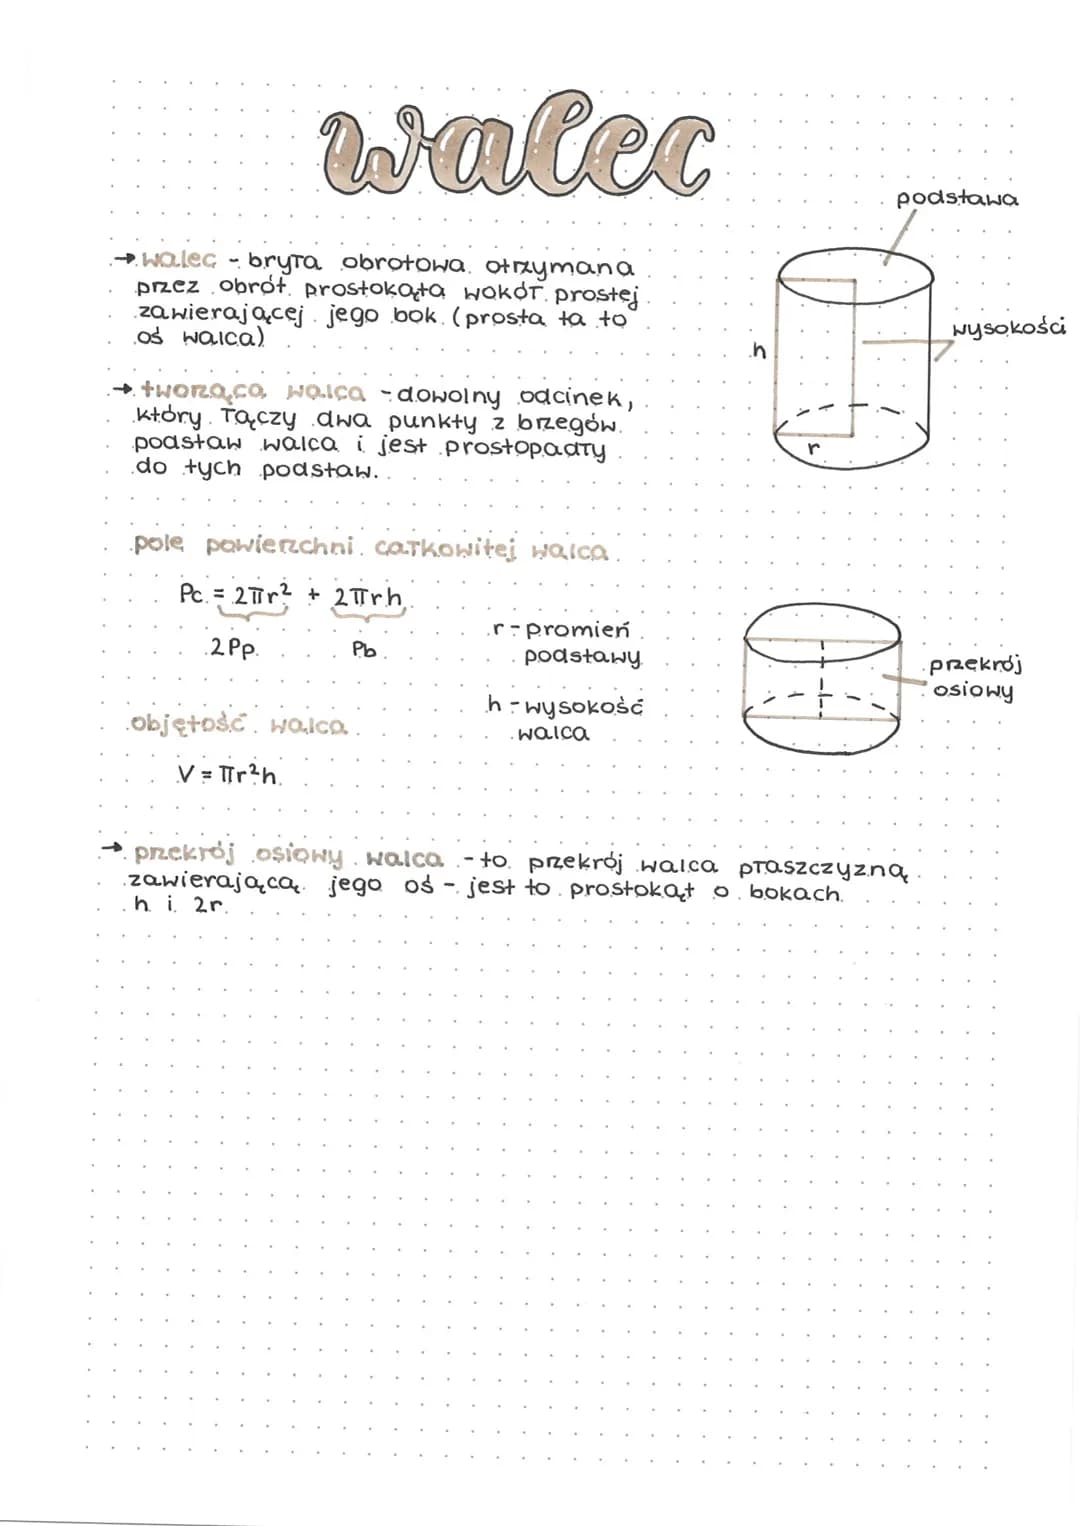 walec
podstawa
→ walec - bryła obrotowa otrzymana
przez obrót prostokąta wokół prostej
zawierającej jego bok (prosta ta to
oś walca)
wysokości
h
r
→ tworząca walca - dowolny odcinek,
który łączy dwa punkty z brzegów
podstaw walca i jest prostopadły
do tych podstaw.
pole powierzchni całkowitej walca
Pc = 2πr² + 2πrh
2Pp Pb
r - promień
podstawy
h - wysokość
walca
przekrój
osiowy
objętość walca
V = πr²h
→ przekrój osiowy walca - to przekrój walca płaszczyzną
zawierającą jego oś - jest to prostokąt o bokach
h i 2r